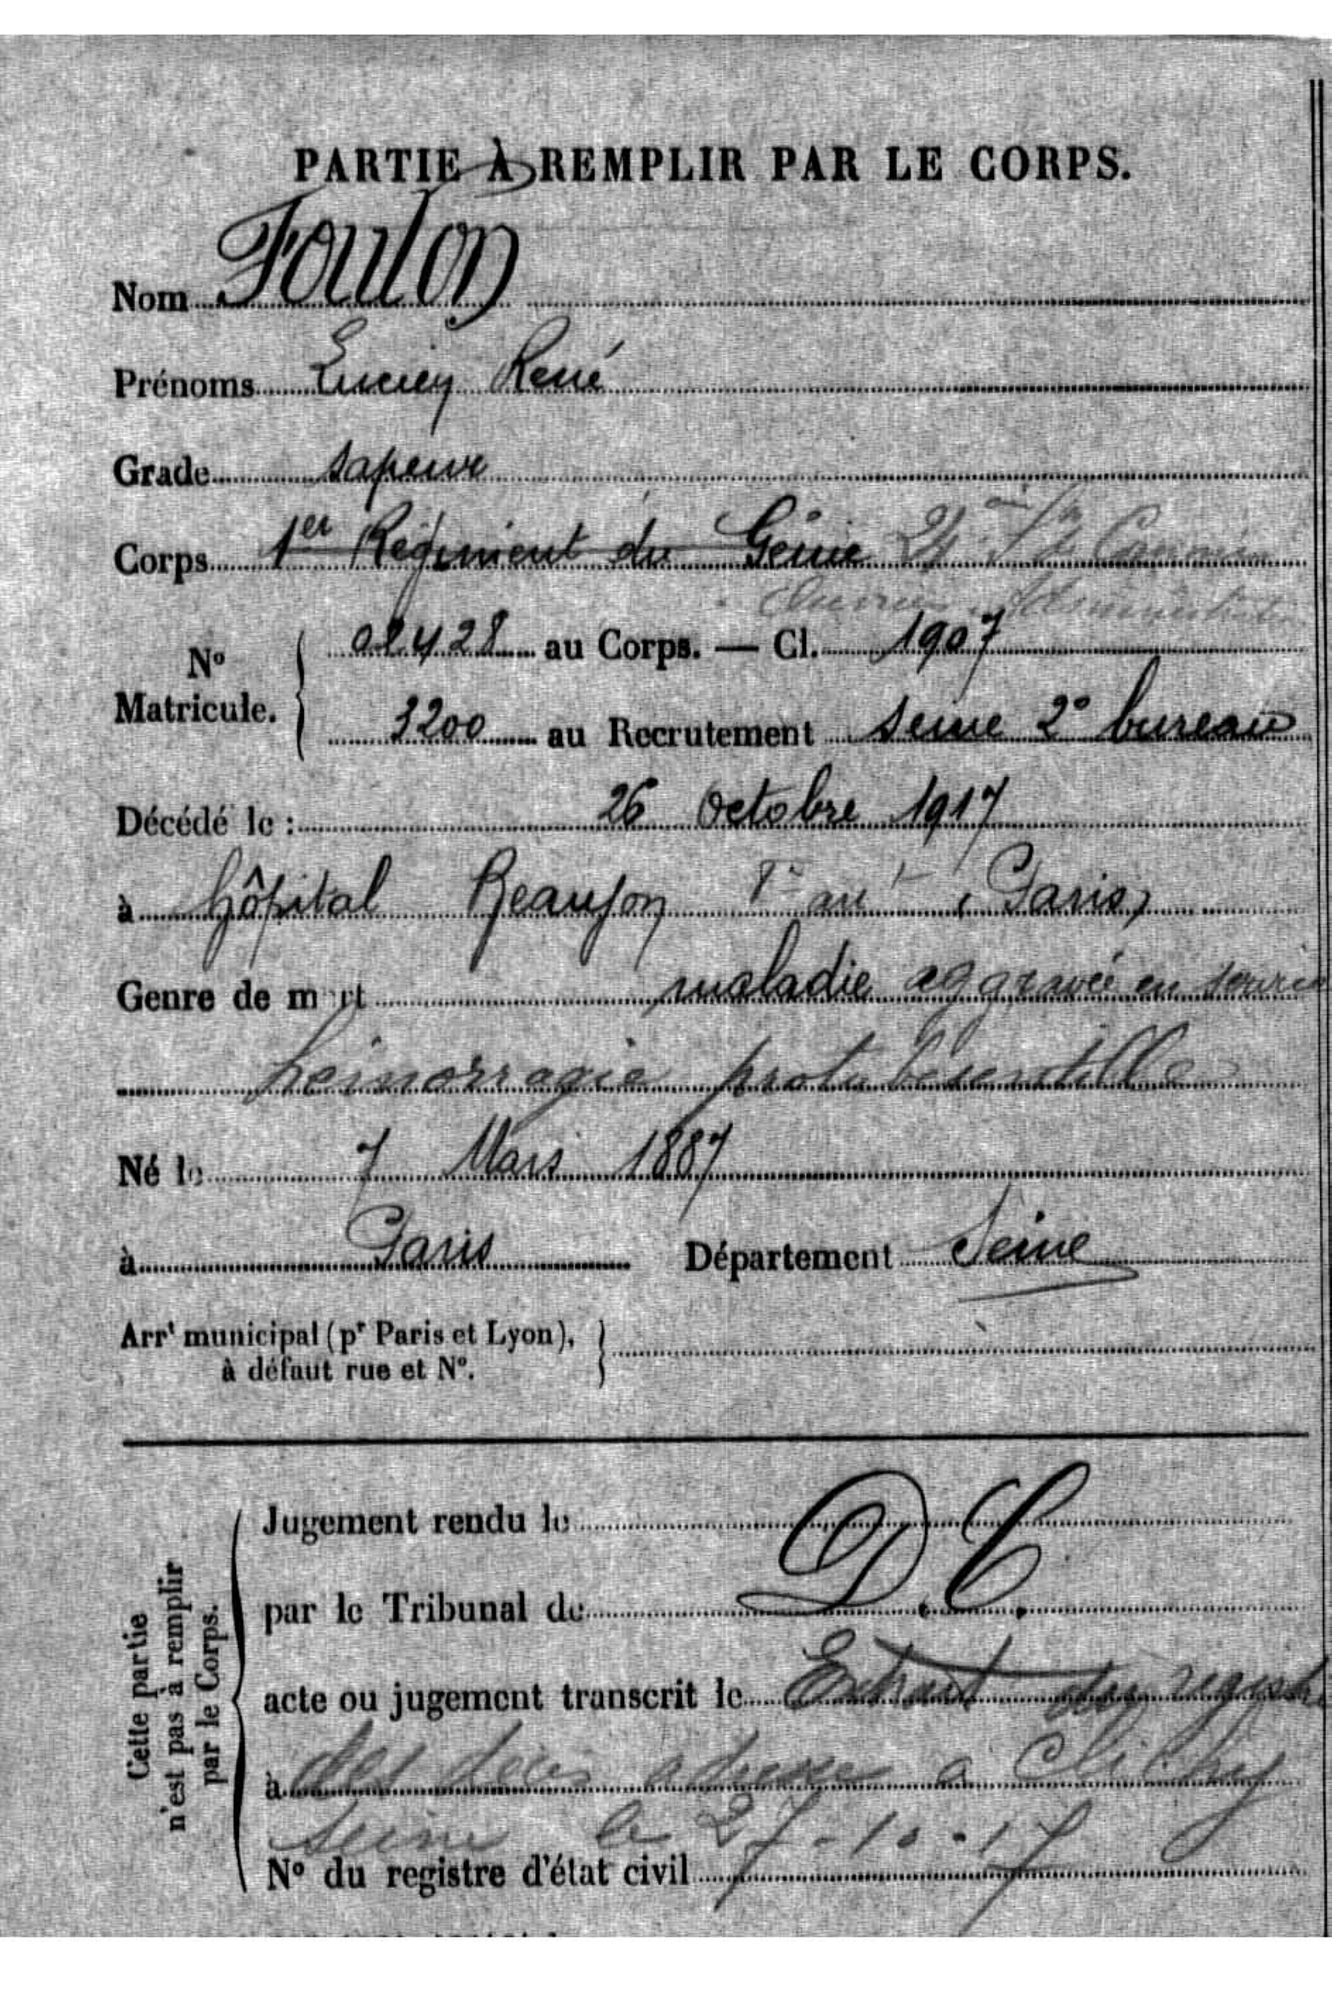 PARTIE À REMPLIR PAR LE CORPS.
Nom Foulon
Prénoms Lucien René
Grade sapeur
Corps 1er Régiment du Génie 24
Administration
No Matricule. { 02428 au Corps. — Cl. 1907
3200 au Recrutement Seine 2e bureau
Décédé le : 26 octobre 1917
à hôpital Beaujon (Paris)
Genre de mort maladie aggravée en service
hémorragie protubérentielle
Né le 7 Mars 1887
à Paris Département Seine
Arrt municipal (pr Paris et Lyon),
à défaut rue et No.
Cette partie
n'est pas à remplir
par le Corps.
Jugement rendu le
par le Tribunal de D.C.
acte ou jugement transcrit le Extrait du registre
à des décès adressé à Clichy
Seine le 27-10-17
No du registre d'état civil